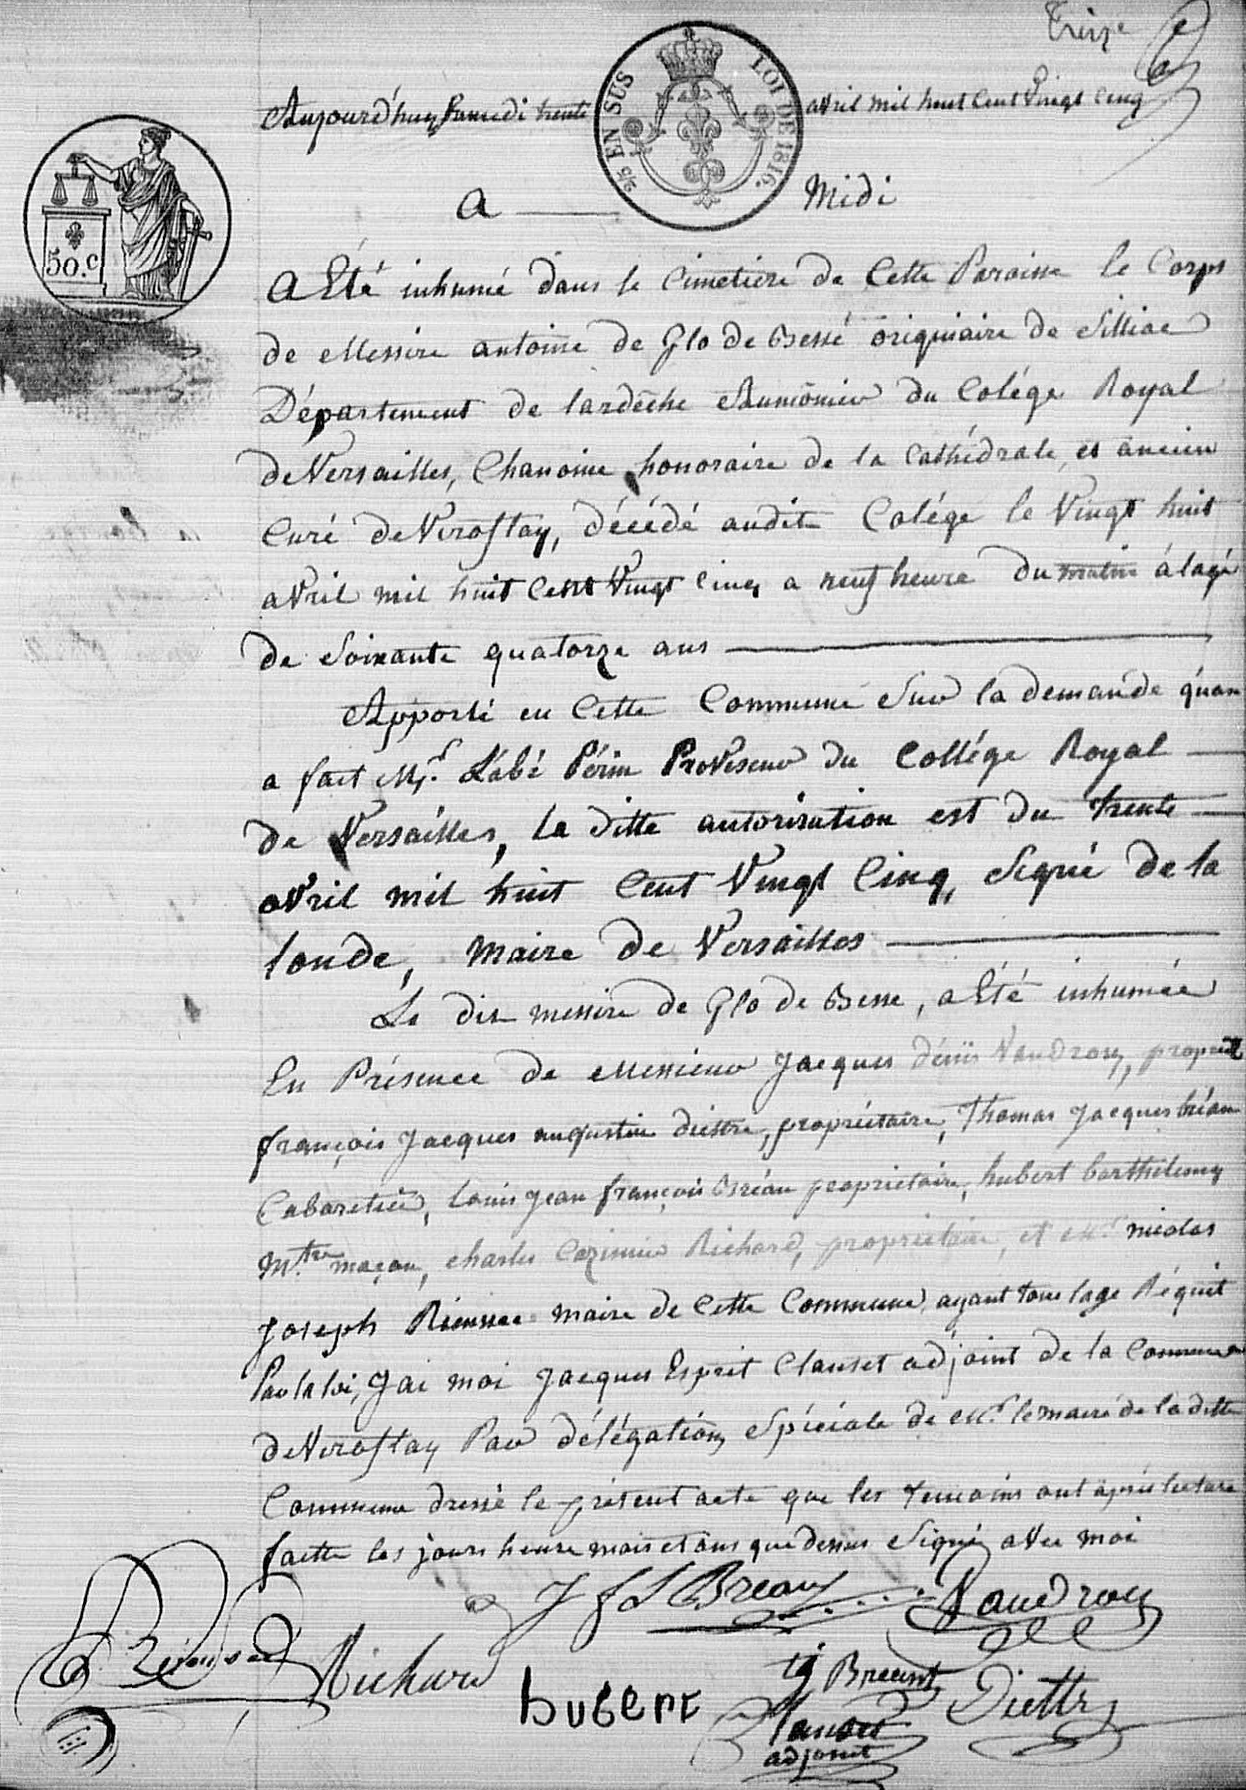 Treize
Aujourd'huy Samedi trente avril mil huit Cent Vingt Cinq
2/5 EN SUS LOI DE 1816.
50.c
A Midi
A Eté inhumé dans le Cimetiere de Cette Paroisse le Corps
de Messire antoine de Glo de Bessé originaire de Silliac
Département de lardêche Aumônier du Colége Royal
de Versailles, Chanoine honoraire de la Cathédrale, et ancien
Curé de Viroflay, décédé audit Colége le Vingt huit
avril mil huit Cent Vingt Cinq a neuf heure du matin á lagé
de Soixante quatorze ans
Apporté en Cette Commune Sur la demande qu'an
a fait Mr. L'abé Périn Proviseur du Collége Royal
de Versailles, la ditte autorisation est du trente
avril mil huit Cent Vingt Cinq, Signé de la
londe, Maire de Versailles
Le dit messire de Glo de Besse, a Eté inhumée
En Présence de Messieur Jacques dénis Vaudron, propriét
françois Jacques augustin diettre, propriétaire, Thomas Jacques bréan
Cabaretier, Louis Jean françois Bréan propriétaire, hubert barthelemy
M.tre maçon, charles Cazimir Richard, propriétaire, et Mr. nicolas
Joseph maire de Cette Commune, ayant tous lage Réquit
Par la loi, Jai moi Jacques Esprit Clauset adjoint de la Commune
de Viroflay Par délégation Spéciale de Mr. le maire de la ditte
Commune dressé le présent acte que les temoins ont après lecture
faitte les jours heure mois et ans que dessus Signé avec moi
J f L Brean Vaudron
Richard
hubert
tj Breant
Diettre
Clauset
adjoint